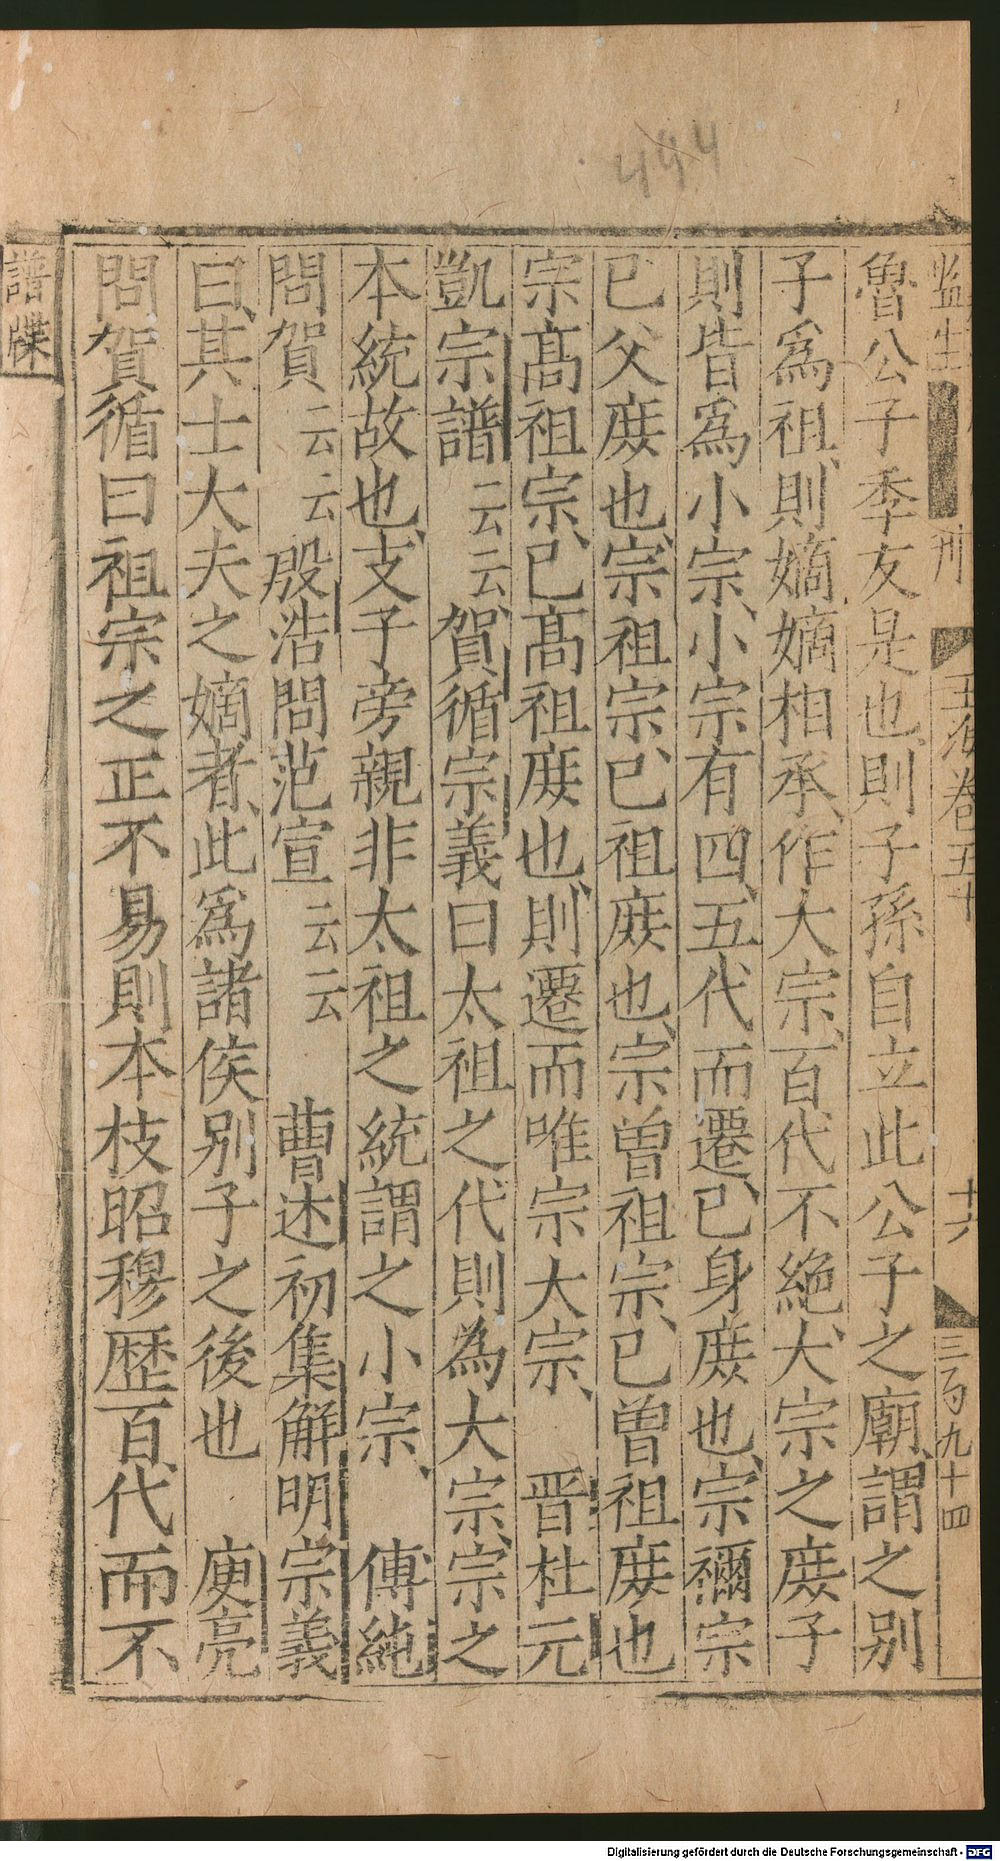 494
監生 刊 玉海卷五十 十六 三百九十四
魯公子季友是也則子孫自立此公子之廟謂之別
子爲祖則嫡嫡相承作大宗百代不絶大宗之庻子
則皆爲小宗小宗有四五代而遷已身庻也宗禰宗
已父庻也宗祖宗已祖庻也宗曽祖宗已曽祖庻也
宗髙祖宗已髙祖庻也則遷而唯宗大宗 晋杜元
凱宗譜云云賀循宗義曰太祖之代則為大宗宗之
本統故也支子旁親非太祖之統謂之小宗 傅純
問賀云云 殷浩問范宣云云 曹述初集解明宗義
曰其士大夫之嫡者此爲諸侯别子之後也 庾亮
問賀循曰祖宗之正不易則本枝昭穆歴百代而不
譜牒
Digitalisierung gefördert durch die Deutsche Forschungsgemeinschaft - DFG